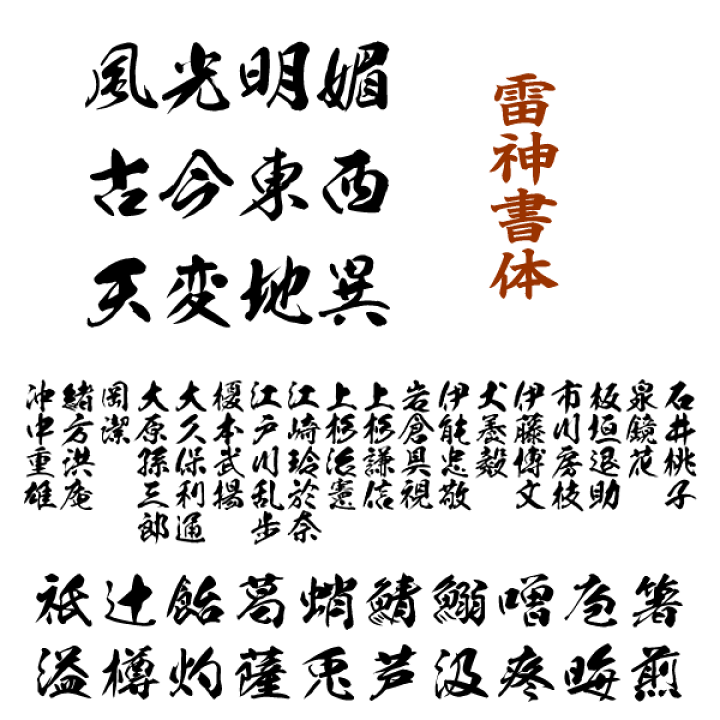 風光明媚
古今東西
天変地異
雷神書体
石井桃子
泉鏡花
板垣退助
市川房枝
伊藤博文
犬養毅
伊能忠敬
岩倉具視
上杉謙信
上杉治憲
江崎玲於奈
江戸川乱歩
榎本武揚
大久保利通
大原孫三郎
岡潔
緒方洪庵
沖中重雄
祇辻飴葛蛸鯖鰯噌庖箸
溢樽灼薩兎芦汲疼晦煎